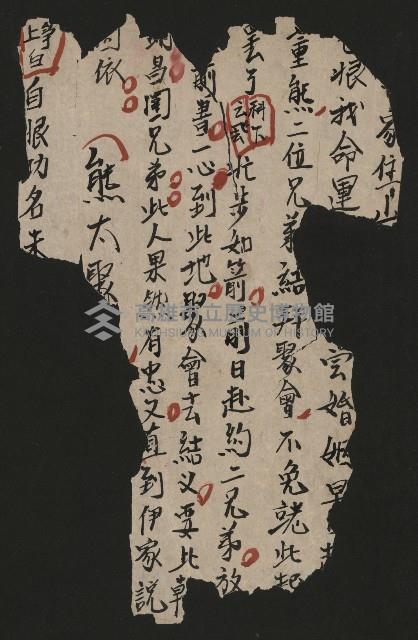 家住
恨我命運 云婚姻早
童熊二位兄弟結拜聚會不免就此起
罢了 科下 云武 忙步如箭前日赴約二兄弟放
前書一心到此地聚會去結义要比
昌國兄弟此人果然有忠义直到伊家説
依
熊大聚
净白 自恨功名未
高雄市立歷史博物館
KAOHSIUNG MUSEUM OF HISTORY